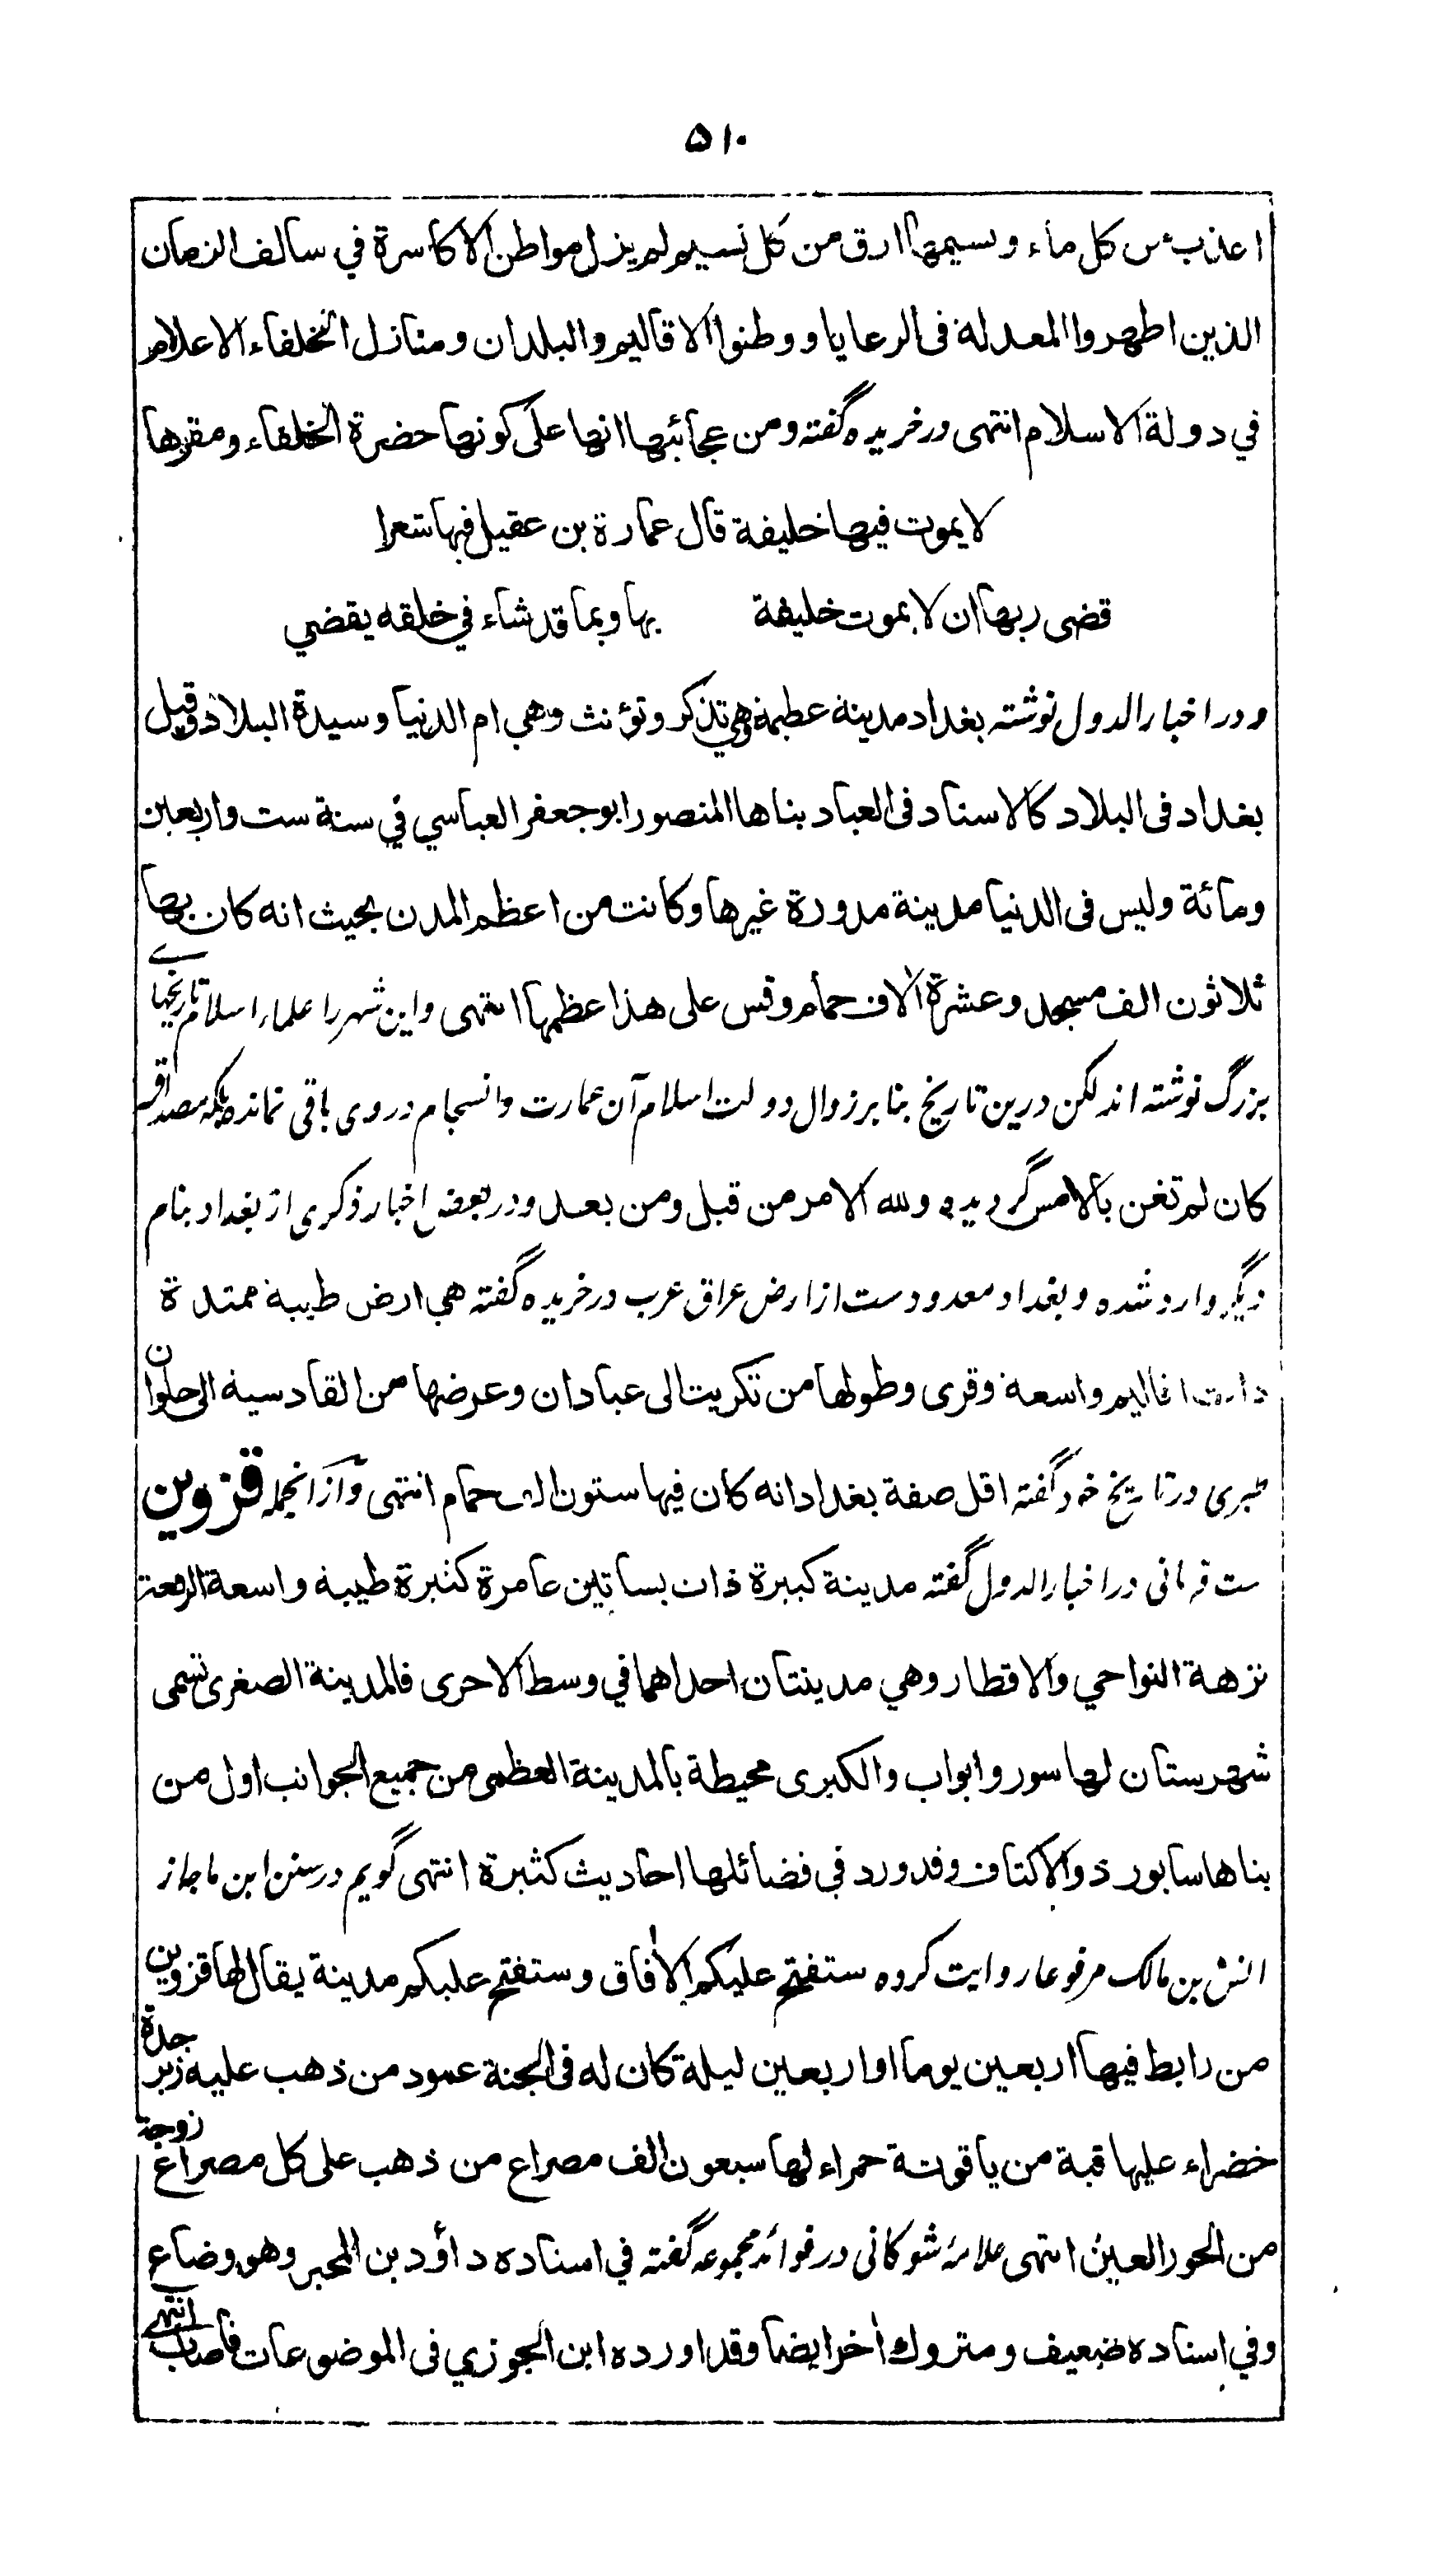 ۵۱۰
اعذب من كل ماء ونسيمها ارق من كل نسيم لم يزل مواطن الاكاسرة في سالف الزمان
الذين اظهروا المعدلة فى الرعايا ووطنوا الاقاليم والبلدان ومنازل الخلفاء الاعلام
في دولة الاسلام انتهى ودرخريده گفته ومن عجائبها انها على كونها حضرة الخلفاء ومقرها
لا يموت فيها خليفة قال عمارة بن عقيل فيها شعرا
قضى ربها ان لا يموت خليفة بها وبما قد شاء في خلقه يقضي
ودر اخبار الدول نوشته بغداد مدينة عظيمة وهي تذكر وتؤنث وهي ام الدنيا وسيدة البلاد وقيل
بغداد فى البلاد كالاستاد فى العباد بناها المنصور ابو جعفر العباسي في سنة ست واربعين
ومائة وليس فى الدنيا مدينة مدورة غيرها وكانت من اعظم المدن بحيث انه كان بها
ثلاثون الف مسجد وعشرة الاف حمام وقس على هذا عظمها انتهى واين شهر را علماء اسلام تاريخهاے
بزرگ نوشته اند لكن درين تاريخ بنا بر زوال دولت اسلام آن عمارت وانسجام در وى باقى نمانده بلكه مصداق
كان لم تغن بالامس گرديده ولله الامر من قبل ومن بعد ودر بعض اخبار ذكرى از بغداد بنام
ديگر وارد شده وبغداد معدودست از ارض عراق عرب درخريده گفته هي ارض طيبة ممتدة
ذات اقاليم واسعة وقرى وطولها من تكريت الى عبادان وعرضها من القادسية الى حلوان
طبرى در تاريخ خود گفته اقل صفة بغداد انه كان فيها ستون الف حمام انتهى وازانجمله قزوين
ست قرمانى در اخبار الدول گفته مدينة كبيرة ذات بساتين عامرة كثيرة طيبة واسعة الرقعة
نزهة النواحي والاقطار وهي مدينتان احداهما في وسط الاخرى فالمدينة الصغرى تسمى
شهرستان لها سور وابواب والكبرى محيطة بالمدينة العظمى من جميع الجوانب اول من
بناها سابور ذو الاكتاف وقد ورد في فضائلها احاديث كثيرة انتهى گويم در سنن ابن ماجه از
انس بن مالك مرفوعا روايت كرده ستفتح عليكم الآفاق وستفتح عليكم مدينة يقال لها قزوين
من رابط فيها اربعين يوما او اربعين ليلة كان له فى الجنة عمود من ذهب عليه زبرجدة
خضراء عليها قبة من ياقوتة حمراء لها سبعون الف مصراع من ذهب على كل مصراع زوجة
من الحور العين انتهى علامه شوكانى در فوائد مجموعه گفته في اسناده داؤد بن المحبر وهو وضاع
وفي اسناده ضعيف ومتروك اخر ايضا وقد اورده ابن الجوزي فى الموضوعات فاصاب انتهے